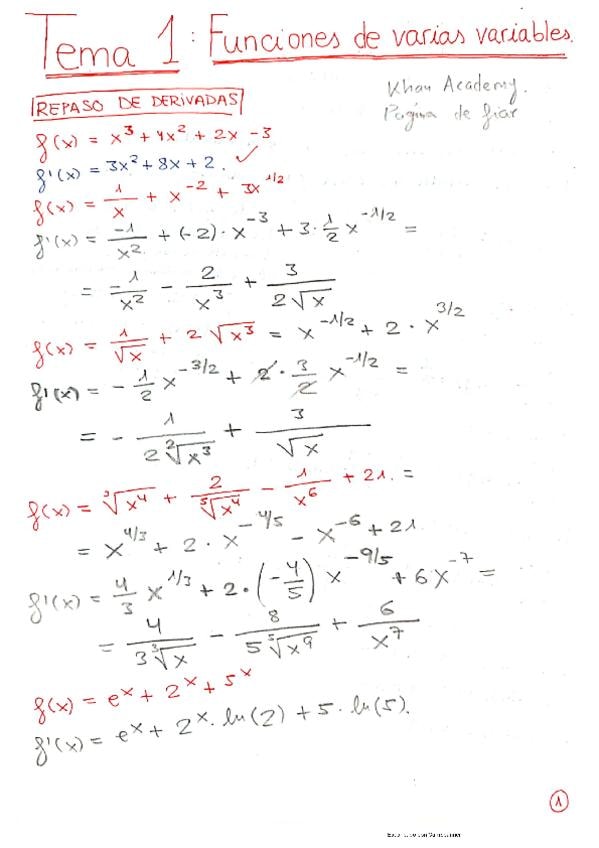 Tema 1: Funciones de varias variables.
Khan Academy.
REPASO DE DERIVADAS
Pagina de fiar
f(x) = x³ + 4x² + 2x - 3
f'(x) = 3x² + 8x + 2. ✓
f(x) = 1/x + x⁻² + 3x^1/2
f'(x) = -1/x² + (-2)·x⁻³ + 3·1/2 x^-1/2 =
= -1/x² - 2/x³ + 3/(2√x)
f(x) = 1/√x + 2√x³ = x^-1/2 + 2·x^3/2
f'(x) = -1/2 x^-3/2 + 2·3/2 x^-1/2 =
= - 1/(2 ²√x³) + 3/√x
f(x) = ³√x⁴ + 2/⁵√x⁴ - 1/x⁶ + 21. =
= x^4/3 + 2·x^-4/5 - x⁻⁶ + 21
f'(x) = 4/3 x^1/3 + 2·(-4/5) x^-9/5 + 6x⁻⁷ =
= 4/(3 ³√x) - 8/(5 ⁵√x⁹) + 6/x⁷
f(x) = eˣ + 2ˣ + 5ˣ
f'(x) = eˣ + 2ˣ·ln(2) + 5·ln(5).
1